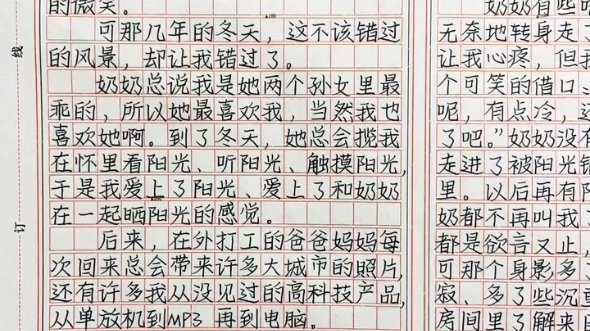 的微笑。
可那几年的冬天，这不该错过
的风景，却让我错过了。
奶奶总说我是她两个孙女里最
乖的，所以她最喜欢我，当然我也
喜欢她啊。到了冬天，她总会揽我
在怀里看阳光、听阳光、触摸阳光，
于是我爱上了阳光、爱上了和奶奶
在一起晒阳光的感觉。
后来，在外打工的爸爸妈妈每
次回来总会带来许多大城市的照片，
还有许多我从没见过的高科技产品，
从单放机到MP3再到电脑。
线
订
奶奶有些
无奈地转身走
让我心疼，但我
个可笑的借口
呢，有点冷，还
了吧。”奶奶没有
走进了被阳光
里。以后再有阳
奶都不再叫我了
都是欲言又止，
可那个身影多了
寂、多了些沉
房间里了解来自